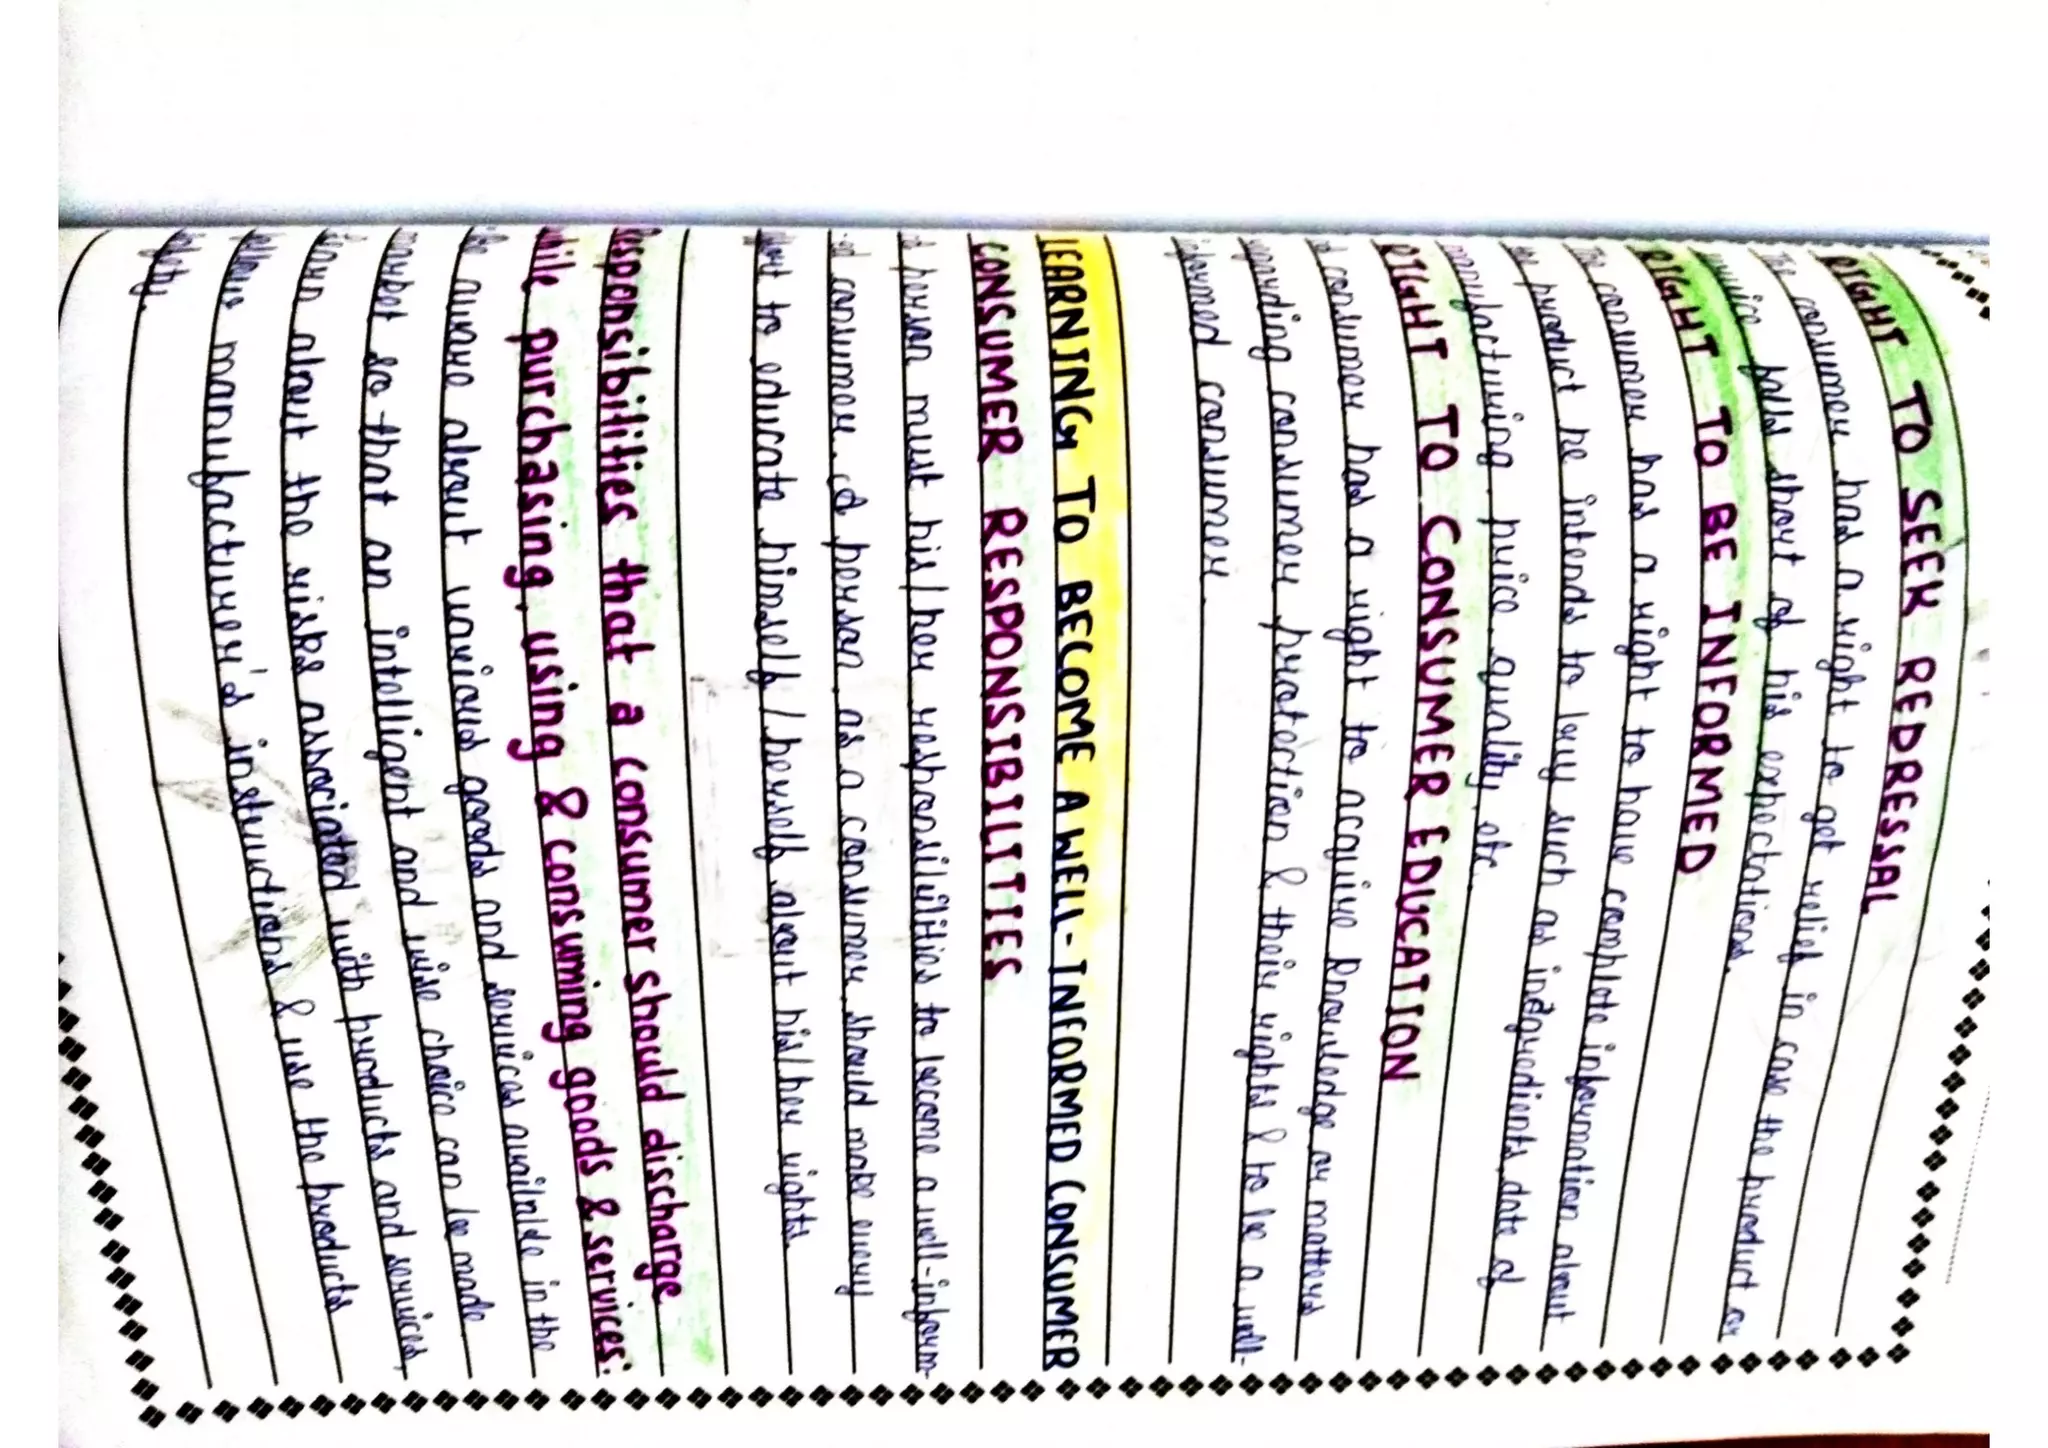 RIGHT TO SEEK REDRESSAL
The consumer has a right to get relief in case the product or
service falls short of his expectations.
RIGHT TO BE INFORMED
The consumer has a right to have complete information about
the product he intends to buy such as ingredients, date of
manufacturing, price, quality, etc.
RIGHT TO CONSUMER EDUCATION
A consumer has a right to acquire knowledge or matters
regarding consumer protection & their rights & to be a well-
informed consumer.
LEARNING TO BECOME A WELL-INFORMED CONSUMER
CONSUMER RESPONSIBILITIES
A person must his/her responsibilities to become a well-inform-
ed consumer. A person as a consumer should make every
effort to educate himself/herself about his/her rights.
Responsibilities that a consumer should discharge
while purchasing, using & consuming goods & services:
Be aware about various goods and services available in the
market so that an intelligent and wise choice can be made
Learn about the risks associated with products and services,
follow manufacturer's instructions & use the products
safely.